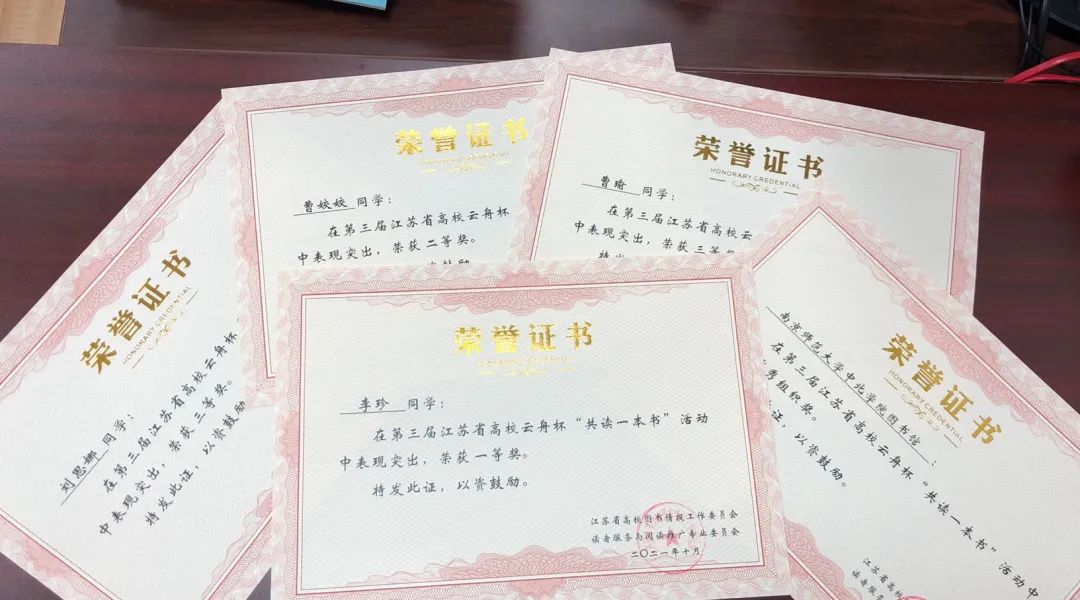 荣誉证书
HONORARY CREDENTIAL
刘思娜 同学：
在第三届江苏省高校云舟杯
中表现突出，荣获三等奖。
特发此证，以资鼓励
荣誉证书
HONORARY CREDENTIAL
曹姣姣 同学：
在第三届江苏省高校云舟杯
中表现突出，荣获二等奖。
荣誉证书
HONORARY CREDENTIAL
曹瑜 同学：
在第三届江苏省高校云
中表现突出，荣获三等
荣誉证书
HONORARY CREDENTIAL
李珍 同学：
在第三届江苏省高校云舟杯“共读一本书”活动
中表现突出，荣获一等奖。
特发此证，以资鼓励。
江苏省高校图书情报工作委员会
读者服务与阅读推广专业委员会
二〇二一年十月
荣誉证书
HONORARY CREDENTIAL
南京师范大学中北学院图书馆：
在第三届江苏省高校云舟杯“共读一本书”活动中
秀组织奖。
证，以资鼓励。
江苏省高校
读者服务